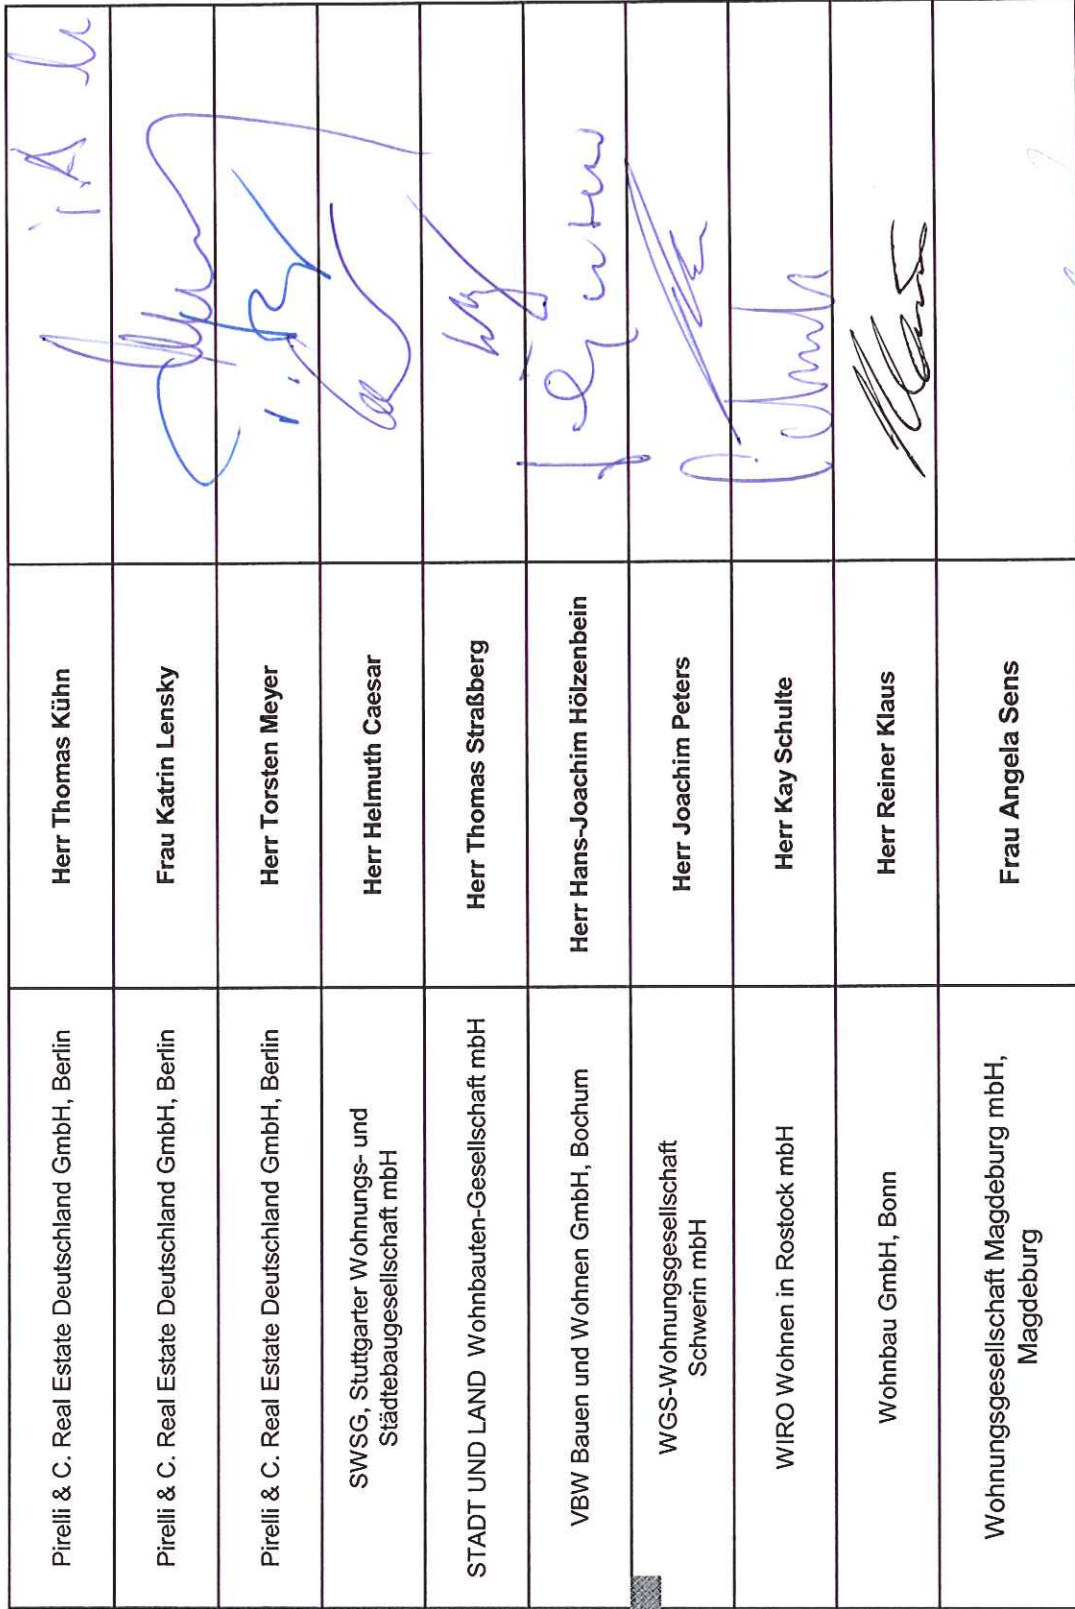 Pirelli & C. Real Estate Deutschland GmbH, Berlin
Herr Thomas Kühn
i.A
Pirelli & C. Real Estate Deutschland GmbH, Berlin
Frau Katrin Lensky
Pirelli & C. Real Estate Deutschland GmbH, Berlin
Herr Torsten Meyer
SWSG, Stuttgarter Wohnungs- und
Städtebaugesellschaft mbH
Herr Helmuth Caesar
STADT UND LAND Wohnbauten-Gesellschaft mbH
Herr Thomas Straßberg
VBW Bauen und Wohnen GmbH, Bochum
Herr Hans-Joachim Hölzenbein
WGS-Wohnungsgesellschaft
Schwerin mbH
Herr Joachim Peters
WIRO Wohnen in Rostock mbH
Herr Kay Schulte
Wohnbau GmbH, Bonn
Herr Reiner Klaus
Wohnungsgesellschaft Magdeburg mbH,
Magdeburg
Frau Angela Sens